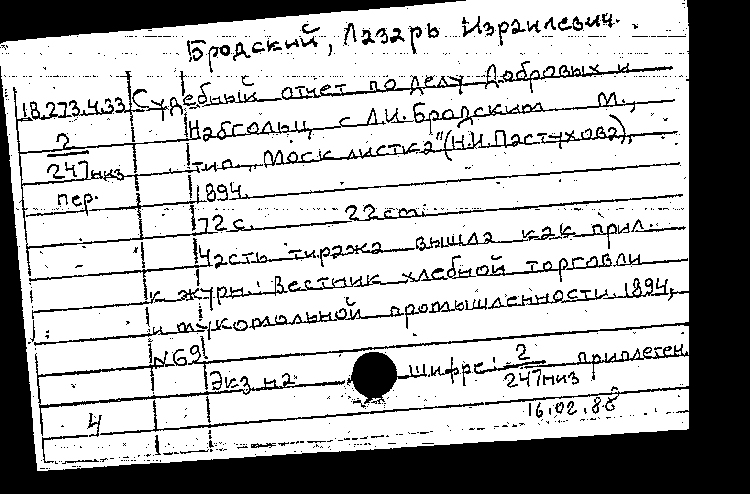 Бродский, Лазарь Израилевич.
18.273.4.33 Судебный отчет по делу Добровых и
2 Набгольц с Л.И. Бродским М.,
247низ тип. "Моск листка" (Н.И. Пастухова),
пер. 1894.
72 с. 22 cm.
Часть тиража вышла как прил.
к журн.: Вестник хлебной торговли
и мукомольной промышленности. 1894,
N69
Экз на шифре: 2/247низ приплетен.
4 16.02.88